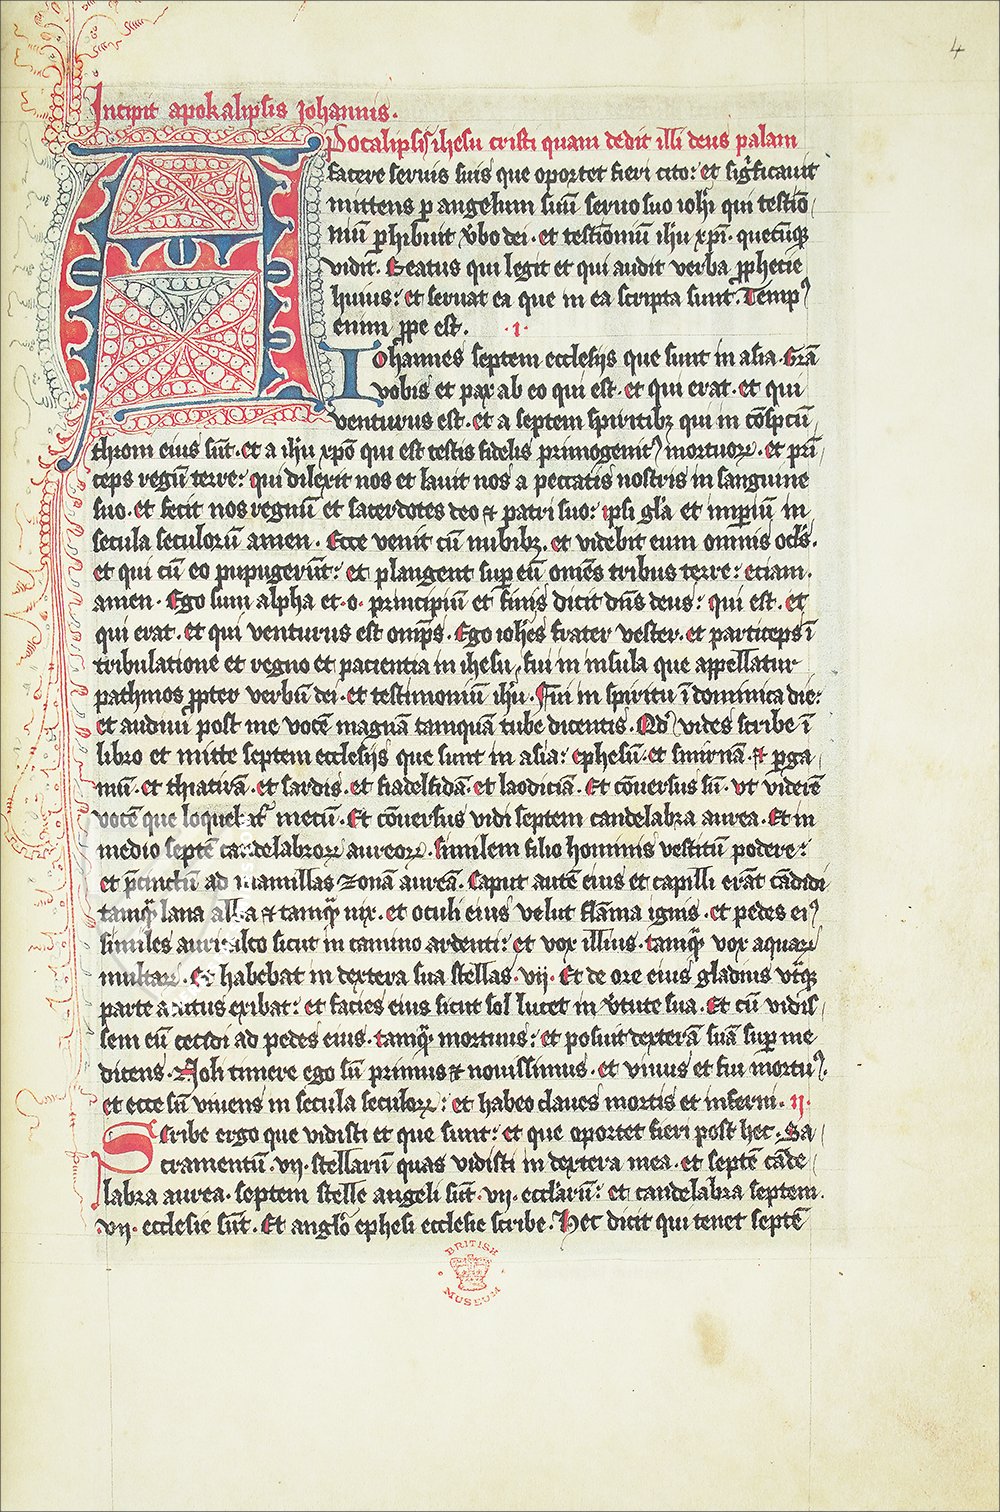 4
Incipit apokalipsis iohannis.
Apocalipsis ihesu cristi quam dedit illi deus palam
facere seruis suis que oportet fieri cito: et sig̃ficauit
mittens p angelum suū seruo suo ioh̃i qui testiō
niū phibuit v̾bo dei. et testiōniū ih̃u xp̃i. quecũq̨
vidit. Beatus qui legit et qui audit verba ꝓphecie
huius: et seruat ea que in ea scripta sunt. Temp⁹
enim ꝓpe est. ·1·
Iohannes septem ecclesijs que sunt in asia. Grā
vobis et pax ab eo qui est. et qui erat. et qui
venturus est. et a septem spiritibꝫ qui in cōspcū
throni eius sūt. et a ih̃u xp̃o qui est testis fidelis primogenit⁹ mortuoꝝ. et prī
ceps regū terre: qui dilexit nos et lauit nos a peccatis nostris in sanguine
suo. et fecit nos regnū et sacerdotes deo ⁊ patri suo: ipsi gl̃a et imꝑiū in
secula seculorū amen. Ecce venit cū nubibꝫ. et videbit eum omnis ocl̃s.
et qui cū eo pupugerūt: et plangent suꝑ eū om̄es tribus terre: eciam.
amen. Ego sum alpha et .o. principiū et finis dicit dn̄s deus: qui est. et
qui erat. et qui venturus est omp̄s. Ego ioh̃es frater vester. et particeps ī
tribulatione et regno et paciencia in ihesu, fui in insula que appellatur
pathmos ꝓpter verbū dei. et testimoniū ih̃u. Fui in spiritu ī dominica die:
et audiui post me vocē magnā tamquā tube dicentis. Qd̾ vides scribe ī
libro et mitte septem ecclesijs que sunt in asia: ephesū. et smirnā. ⁊ ꝑga
mū. et thiatirā. et sardis. et fiadelfidā. et laodiciā. Et cōuersus sū. vt viderē
vocē que loquebat᷑ mecū. Et cōuersus vidi septem candelabra aurea. Et in
medio septē candelabroꝝ aureoꝝ. similem filio hominis vestitū podere:
et p̄cinctū ad mamillas zonā aureā. Caput autē eius et capilli erāt cādidi
tamq̃ lana alba ⁊ tamq̃ nix. et oculi eius velut flāma ignis. et pedes ei⁹
similes auricalco sicut in camino ardenti: et vox illius. tamq̃ vox aquaꝝ
multaꝝ. Et habebat in dextera sua stellas .vij. Et de ore eius gladius vt̾q̨
parte acutus exibat: et facies eius sicut sol lucet in v̾tute sua. Et cū vidis
sem eū cecidi ad pedes eius. tamq̃ mortuus: et posuit dexterā suā suꝑ me
dicens. Noli timere ego sū primus ⁊ nouissimus. et viuus et fui mortu⁹.
et ecce sū viuens in secula seculoꝝ: et habeo claues mortis et inferni. ·ıȷ·
Scribe ergo que vidisti et que sunt: et que oportet fieri post hec. Sa
cramentū .vij. stellarū quas vidisti in dextera mea. et septē cāde
labra aurea. septem stelle angeli sūt .vij. eccl̃arū: et candelabra septem.
.vij. ecclesie sūt. Et angl̃o ephesi ecclesie scribe. Hec dicit qui tenet septē
BRITISH
MUSEUM